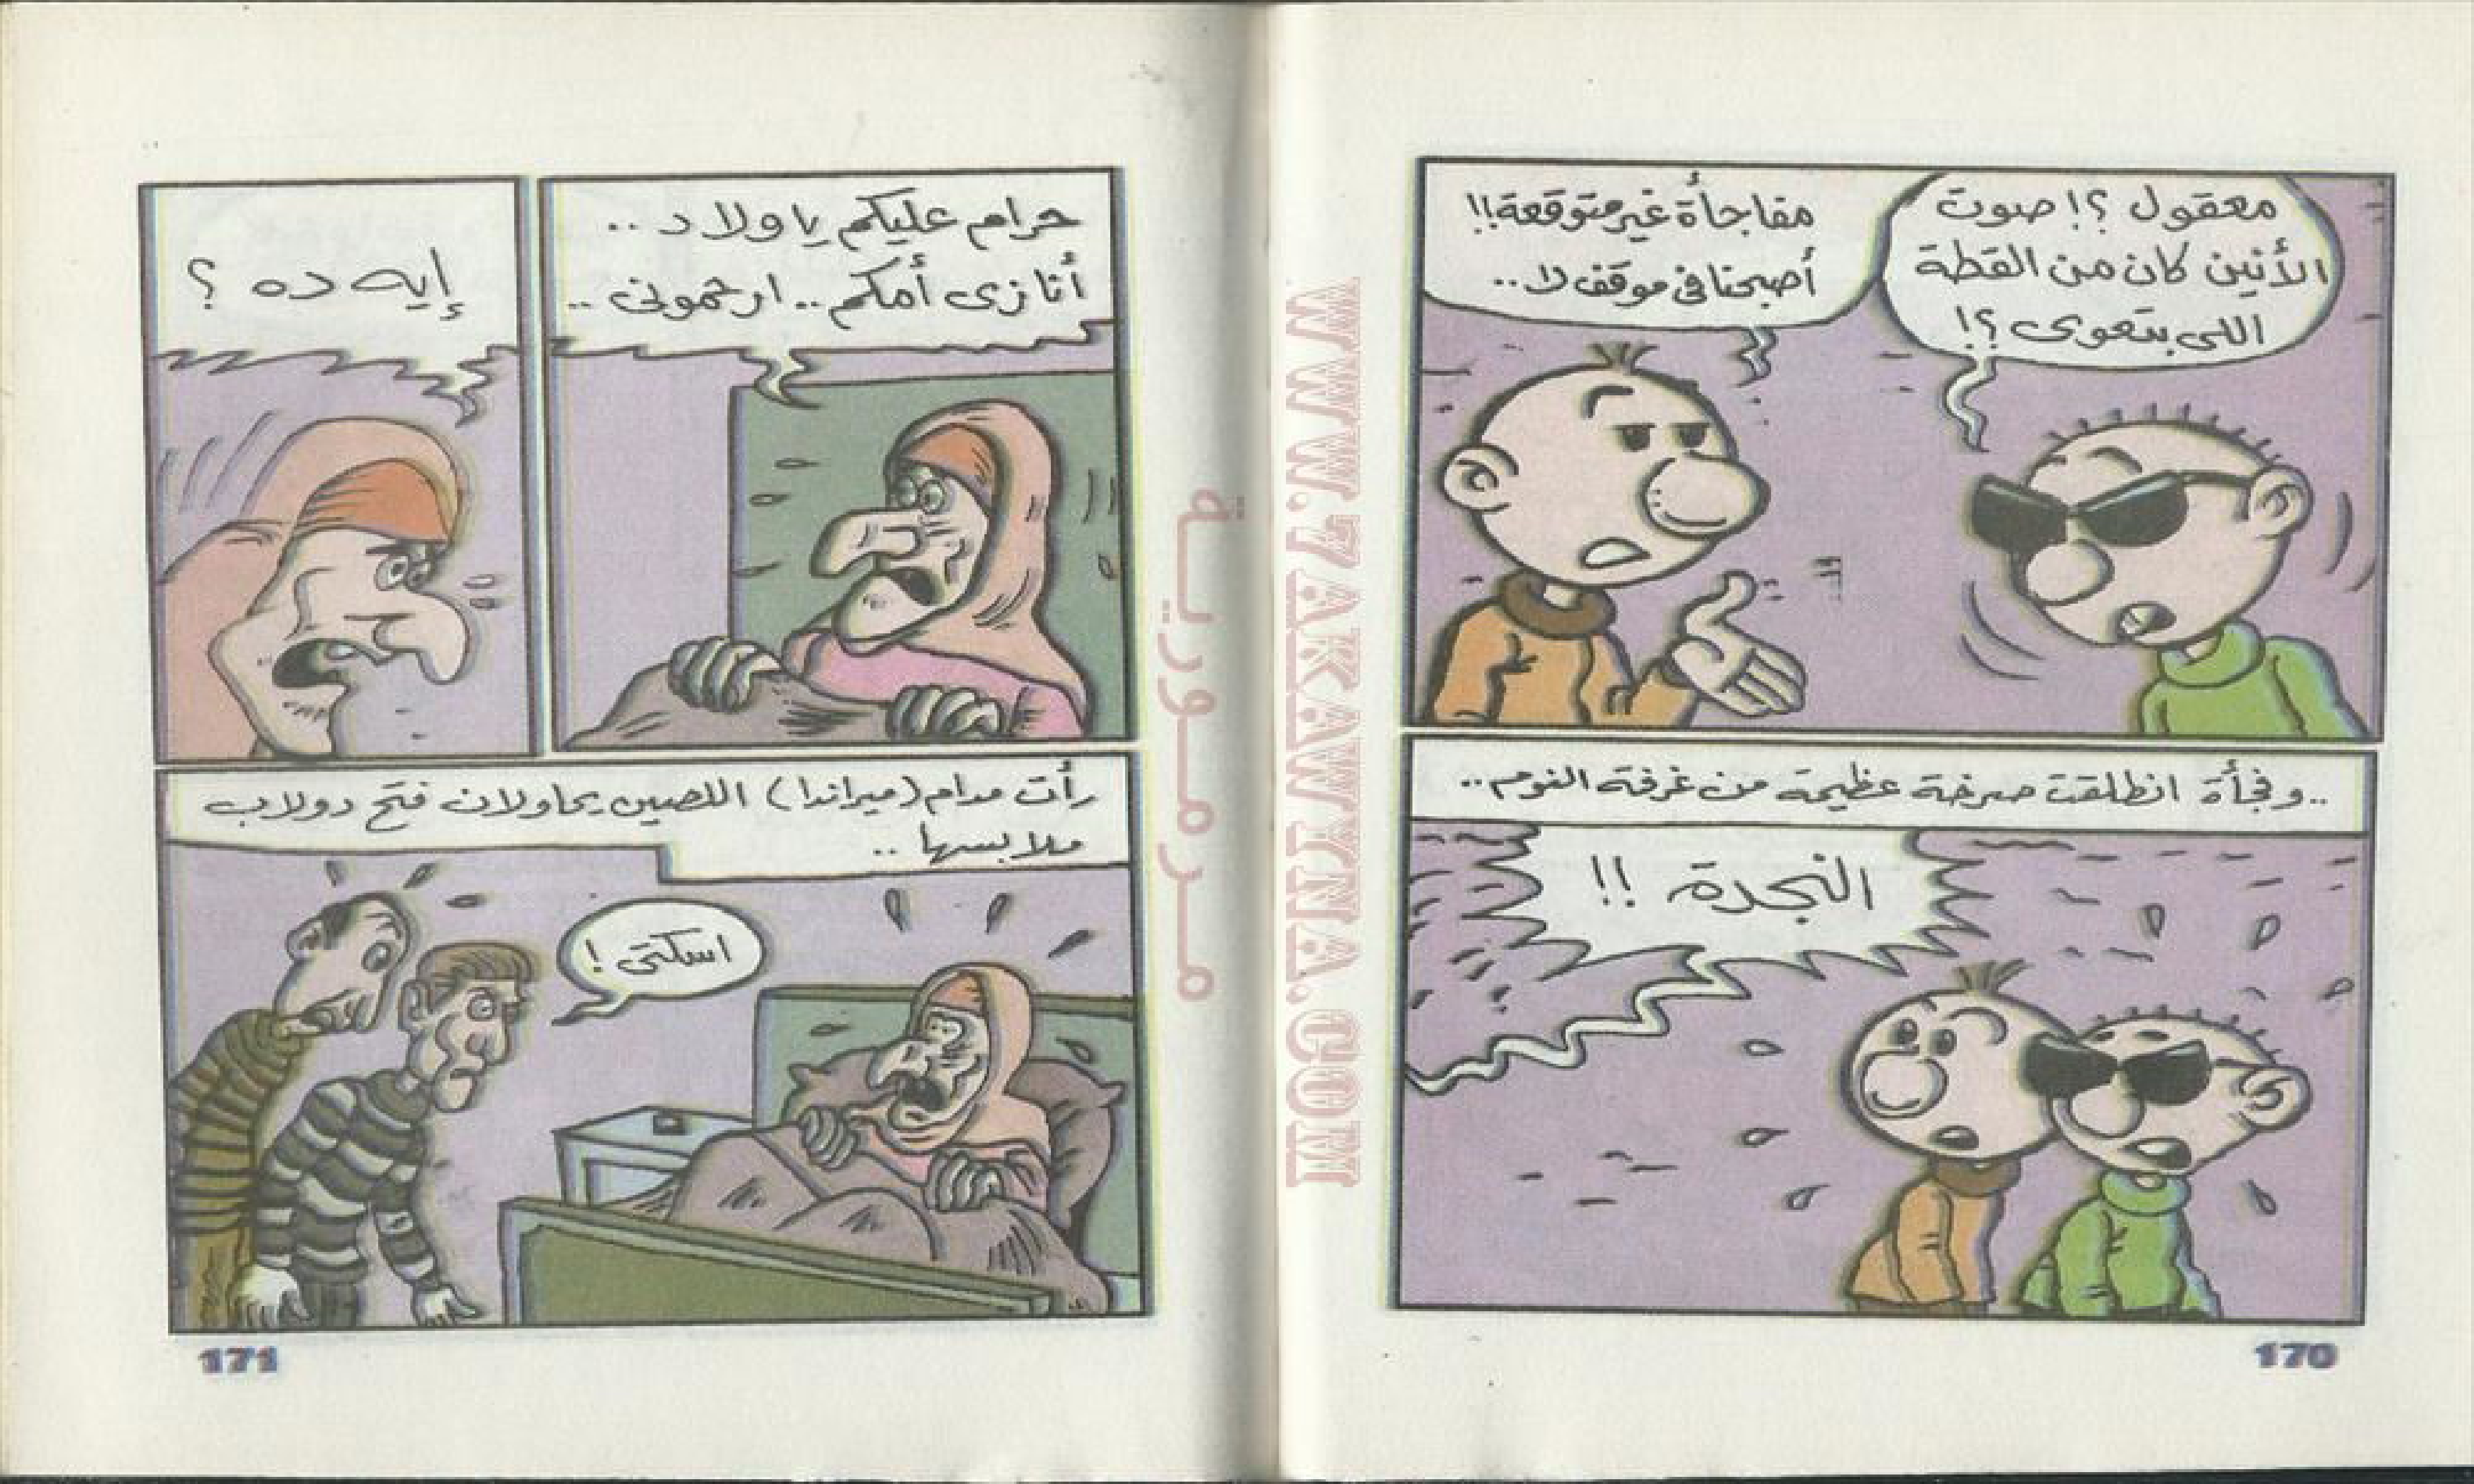 معقول ؟! صوت
الأنين كان من القطة
اللى بتعوى ؟!
مفاجأة غير متوقعة!!
أصبحنا فى موقف لا..
..وفجأة انطلقت صرخة عظيمة من غرفة النوم..
النجدة !!
170
حرام عليكم يا ولاد ..
أنا زى أمكم .. ارحمونى ..
إيه ده ؟
رأت مدام (ميراندا) اللصين يحاولان فتح دولاب
ملابسها ..
اسكتى !
171
مرمورية
WWW.7AKAWYNA.COM